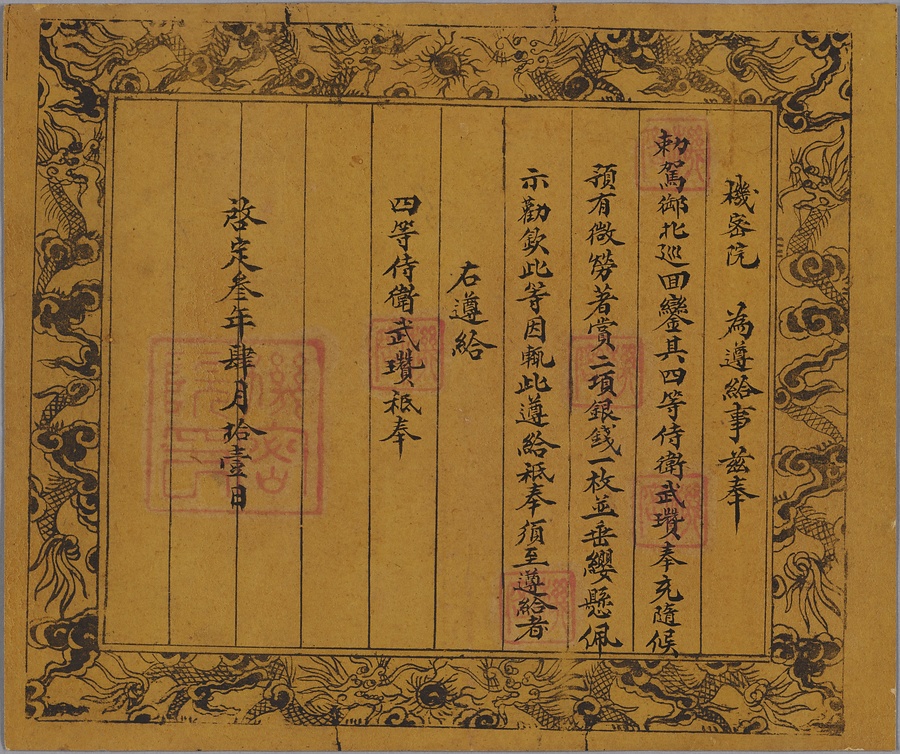 機密院 為遵給事茲奉
勅駕御北巡回鑾其四等侍衛武瓚奉充隨候
預有微勞著賞二項銀錢一枚並垂纓懸佩
示勸欽此等因輒此遵給祗奉須至遵給者
右遵給
四等侍衛武瓚祗奉
啓定叁年肆月拾壹日